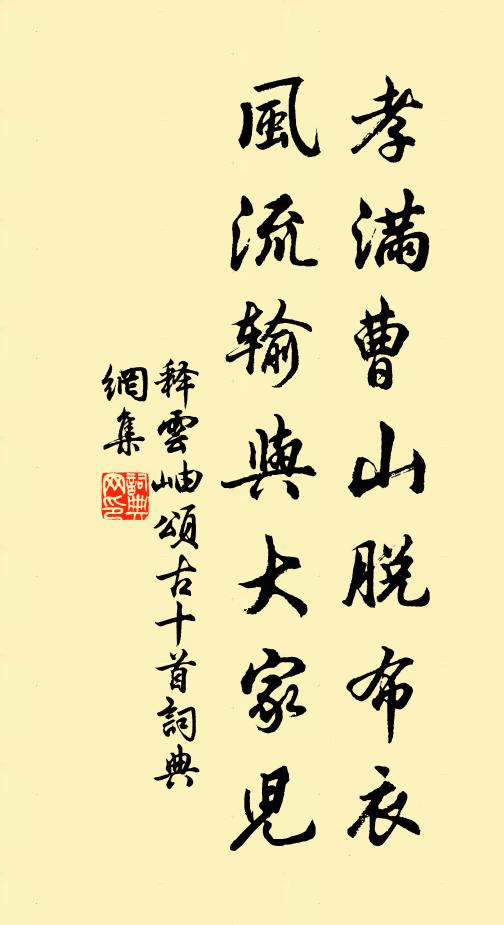 孝滿曹山脱布衣
風流输與大家児
释雲岫頌古十首詞典
網集
詞典
网印